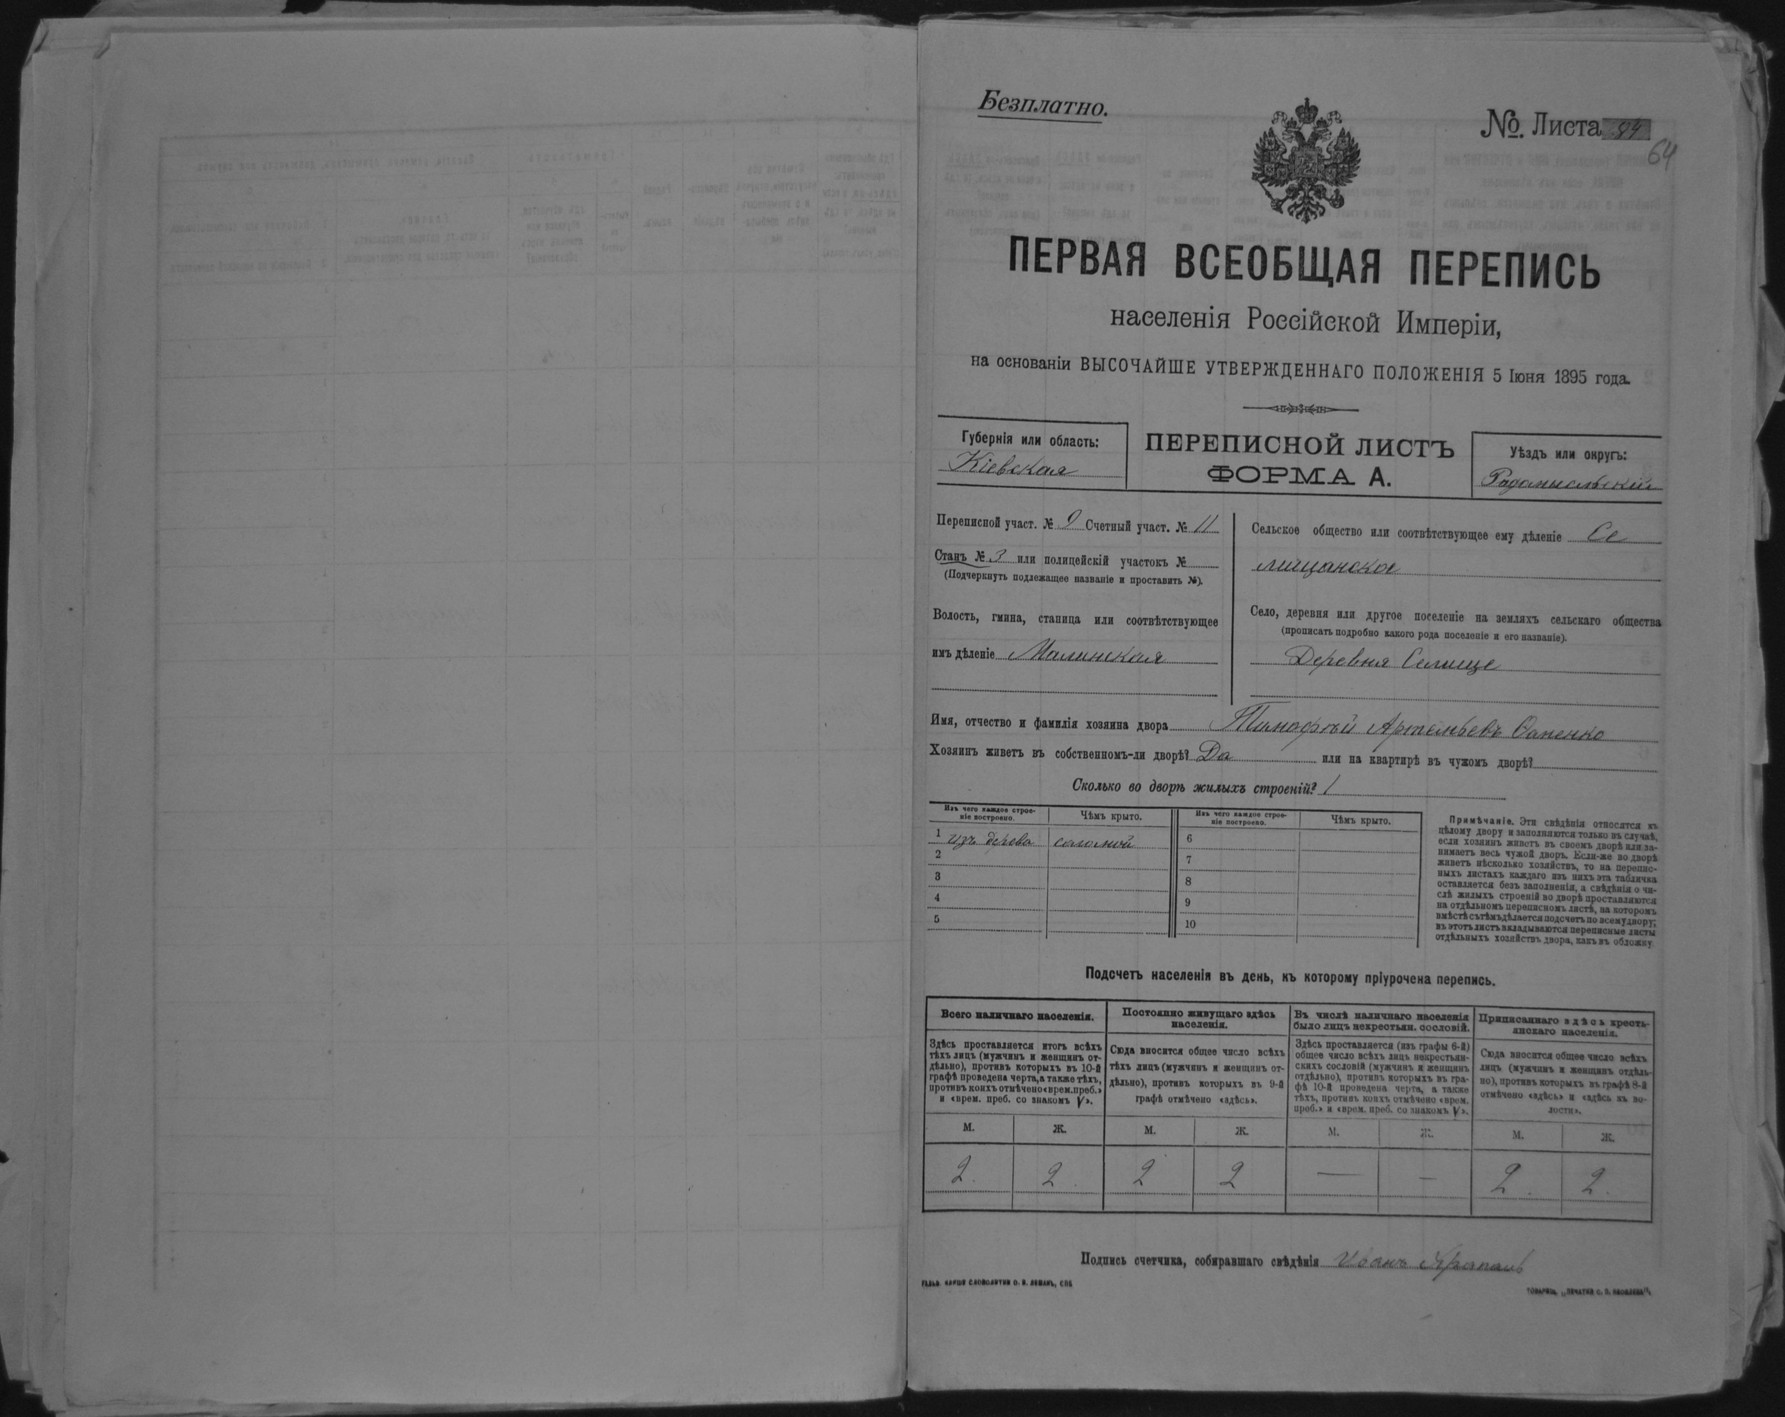 Безплатно.
№. Листа 84
64
ПЕРВАЯ ВСЕОБЩАЯ ПЕРЕПИСЬ
населенія Россійской Имперіи,
на основаніи ВЫСОЧАЙШЕ УТВЕРЖДЕННАГО ПОЛОЖЕНІЯ 5 Іюня 1895 года.
Губернія или область:
Кіевская
ПЕРЕПИСНОЙ ЛИСТЪ
ФОРМА А.
Уѣздъ или округъ:
Радомысльскій
Переписной участ. № 9 Счетный участ. № 11
Станъ № 3 или полицейскій участокъ №
(Подчеркнуть подлежащее названіе и проставить №).
Волость, гмина, станица или соотвѣтствующее
имъ дѣленіе Малинская
Сельское общество или соотвѣтствующее ему дѣленіе Се
лищанское
Село, деревня или другое поселеніе на земляхъ сельскаго общества
(прописать подробно какого рода поселеніе и его названіе).
Деревня Селище
Имя, отчество и фамилія хозяина двора Тимофѣй Артемьевъ
Хозяинъ живетъ въ собственномъ-ли дворѣ? Да или на квартирѣ въ чужомъ дворѣ?
Сколько во дворѣ жилыхъ строеній? 1
Изъ чего каждое строе-
ніе построено.
Чѣмъ крыто.
Изъ чего каждое строе-
ніе построено.
Чѣмъ крыто.
1 изъ дерева соломой
2
3
4
5
6
7
8
9
10
Примѣчаніе. Эти свѣдѣнія относятся къ
цѣлому двору и заполняются только въ случаѣ,
если хозяинъ живетъ въ своемъ дворѣ или за-
нимаетъ весь чужой дворъ. Если-же во дворѣ
живетъ нѣсколько хозяйствъ, то на перепис-
ныхъ листахъ каждаго изъ нихъ эта табличка
оставляется безъ заполненія, а свѣдѣнія о чи-
слѣ жилыхъ строеній во дворѣ проставляются
на отдѣльномъ переписномъ листѣ, на которомъ
вмѣстѣ съ тѣмъ дѣлается подсчетъ по всему двору;
въ этотъ листъ вкладываются переписные листы
отдѣльныхъ хозяйствъ двора, какъ въ обложку.
Подсчетъ населенія въ день, къ которому пріурочена перепись.
Всего наличнаго населенія.
Здѣсь проставляется итогъ всѣхъ
тѣхъ лицъ (мужчинъ и женщинъ от-
дѣльно), противъ которыхъ въ 10-й
графѣ проведена черта, а также тѣхъ,
противъ коихъ отмѣчено «врем. преб.»
и «врем. преб. со знакомъ V».
Постоянно живущаго здѣсь
населенія.
Сюда вносится общее число всѣхъ
тѣхъ лицъ (мужчинъ и женщинъ от-
дѣльно), противъ которыхъ въ 9-й
графѣ отмѣчено «здѣсь».
Въ числѣ наличнаго населенія
было лицъ некрестьян. сословій.
Здѣсь проставляется (изъ графы 6-й)
общее число всѣхъ лицъ некрестьян-
скихъ сословій (мужчинъ и женщинъ
отдѣльно), противъ которыхъ въ гра-
фѣ 10-й проведена черта, а также
тѣхъ, противъ коихъ отмѣчено «врем.
преб.» и «врем. преб. со знакомъ V».
Приписаннаго здѣсь кресть-
янскаго населенія.
Сюда вносится общее число всѣхъ
лицъ (мужчинъ и женщинъ отдѣль-
но), противъ которыхъ въ графѣ 8-й
отмѣчено «здѣсь» и «здѣсь въ во-
лости».
М. Ж. М. Ж. М. Ж. М. Ж.
2. 2. 2 2 — — 2. 2.
Подпись счетчика, собиравшаго свѣдѣнія Иванъ